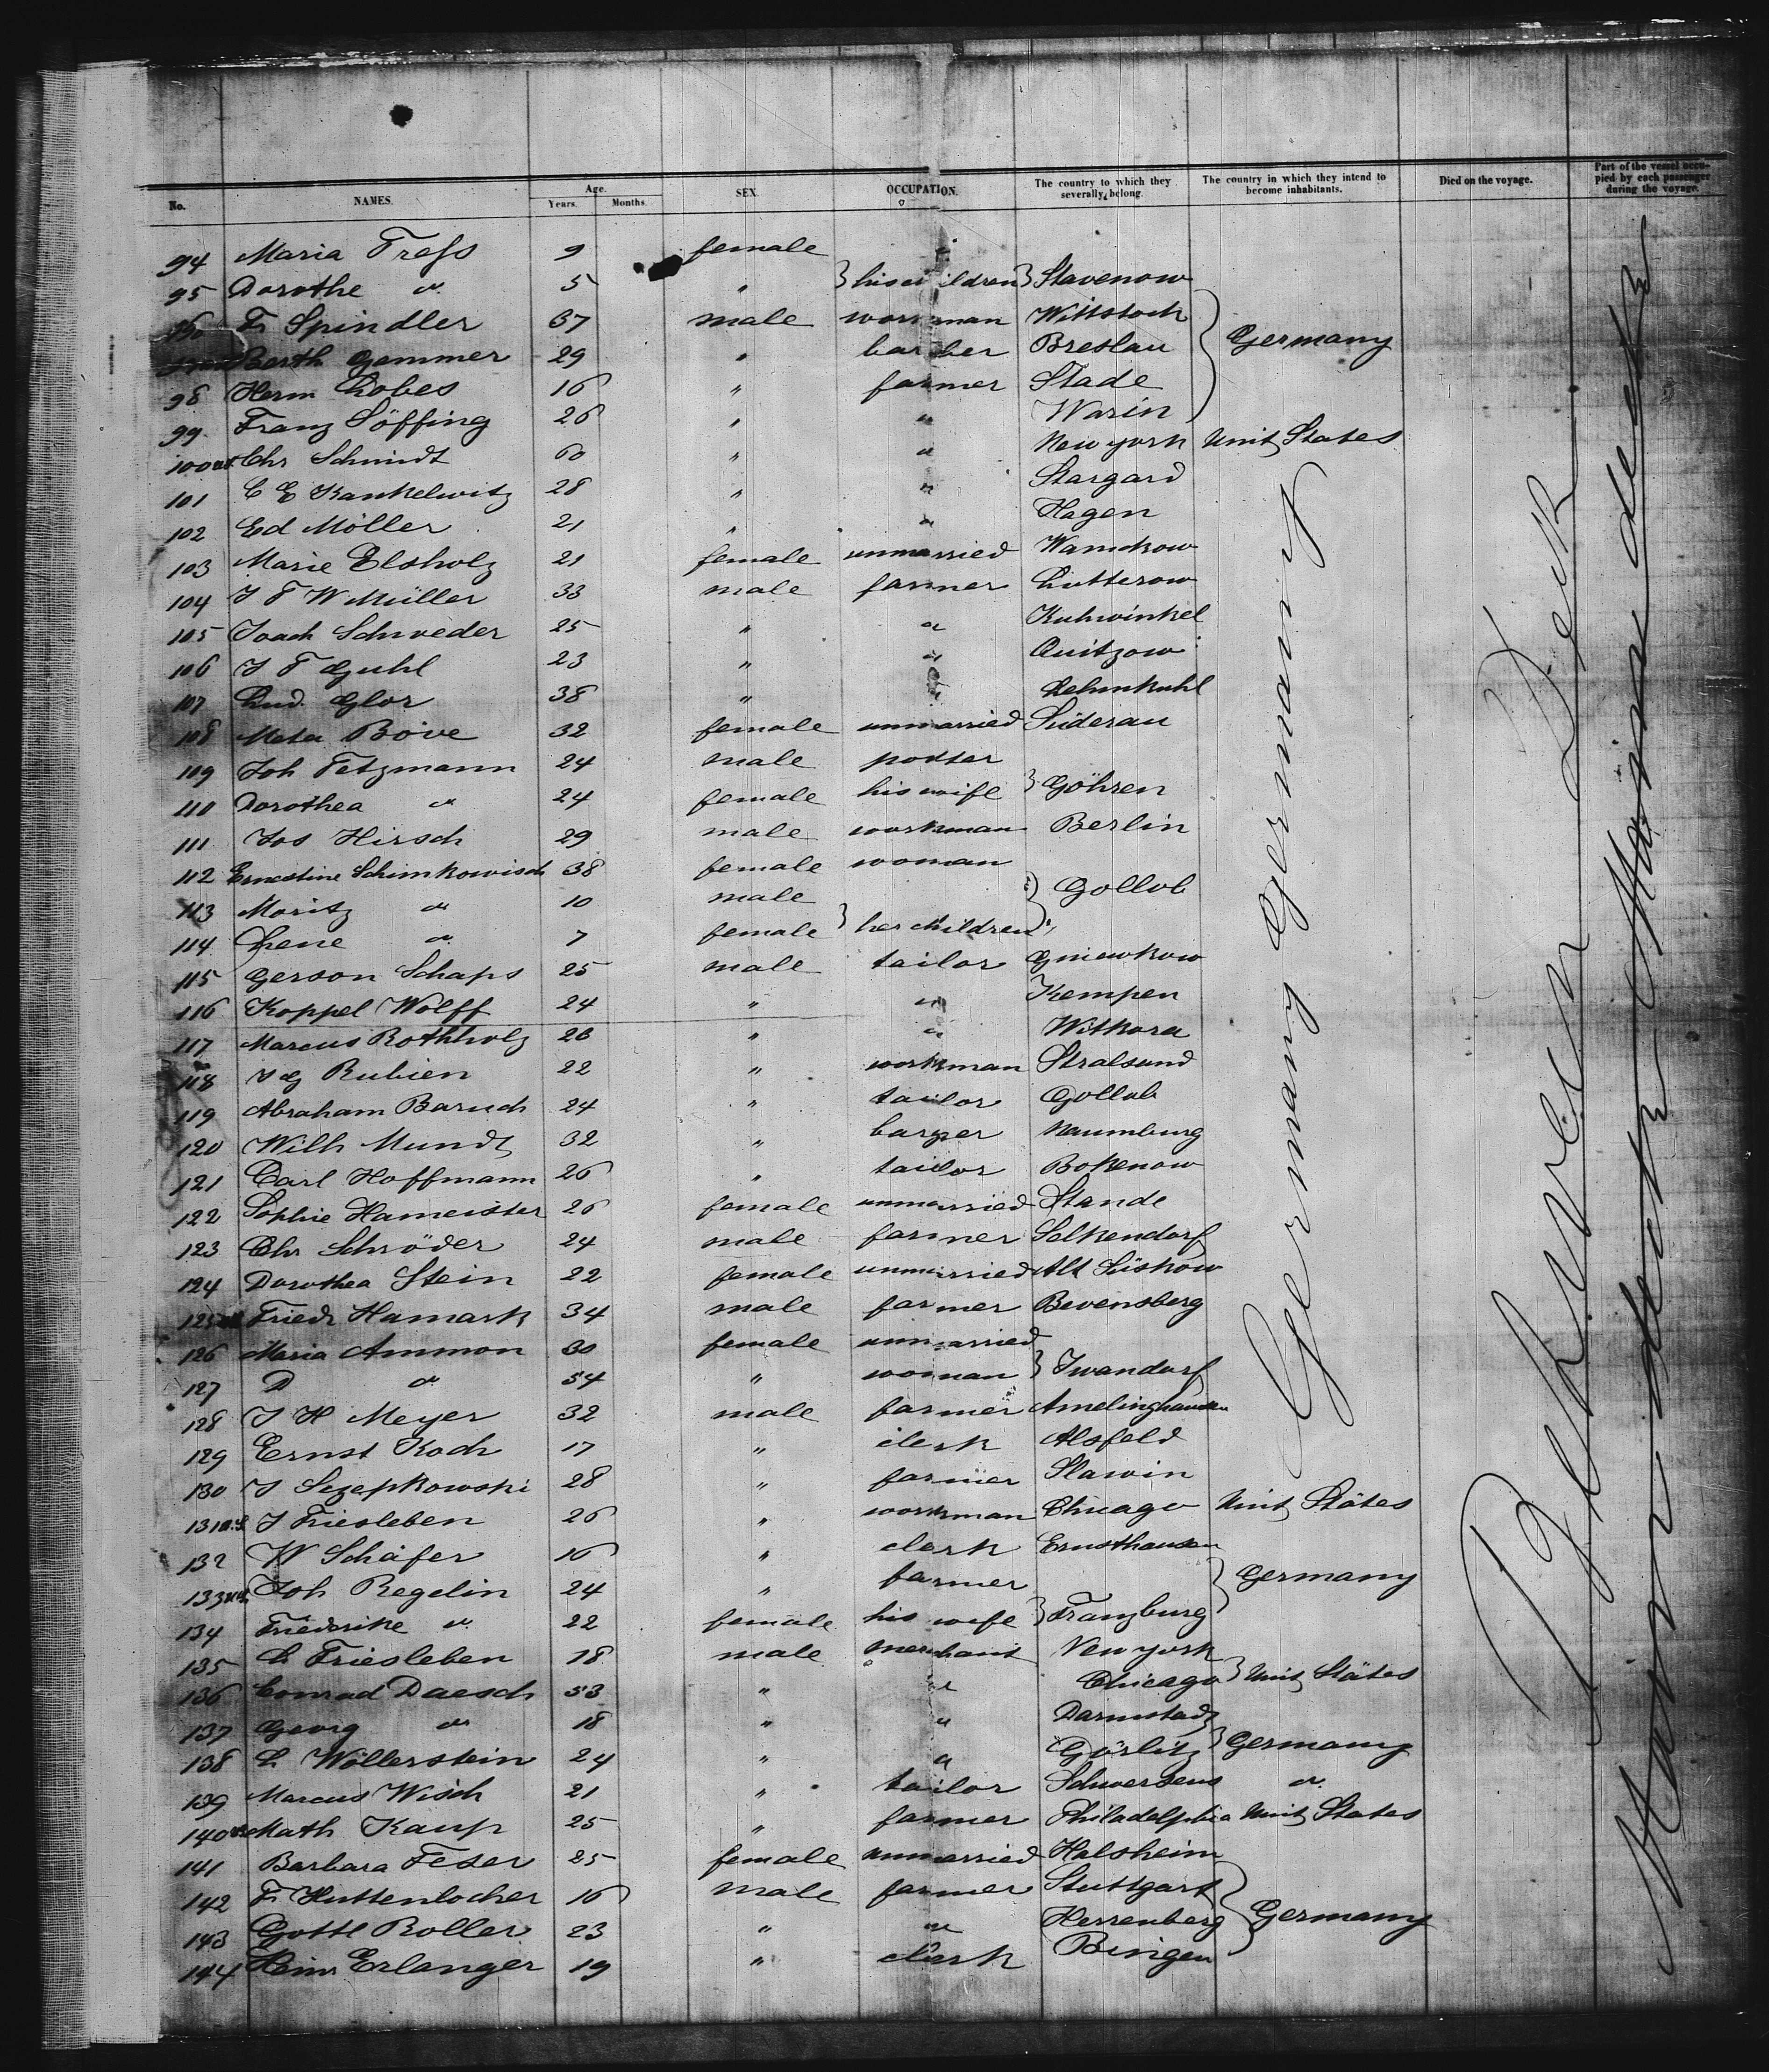 No. NAMES. Age. Years. Months. SEX. OCCUPATION. The country to which they severally belong. The country in which they intend to become inhabitants. Died on the voyage. Part of the vessel occupied by each passenger during the voyage.
94 Maria Trefs 9 female
95 Dorothe " 5 " } his children } Stavenow
96 Fr Spindler 37 male workman Wittstock
Berth Gemmer 29 " barber Breslau } Germany
98 Herm Lobes 16 " farmer Stade
99 Franz Söffing 26 " " Warin
100 Chr Schmidt 60 " " New york Unit States
101 C E Kankelwitz 28 " " Stargard
102 Ed Möller 21 " " Hagen
103 Marie Elsholz 21 female unmarried Wamckow
104 J F W Müller 33 male farmer Lutterow
105 Joach Schweder 25 " " Kuhwinkel
106 J F Guhl 23 " " Quitzow
107 Lud. Glor 38 " " Lehmkuhl
108 Meta Böve 32 female unmarried Süderau
109 Joh Tetzmann 24 male porter
110 Dorothea " 24 female his wife } Göhren
111 Jos Hirsch 29 male workman Berlin
112 Ernestine Schimkowisch 38 female woman
113 Moritz " 10 male } Gollub
114 Lene " 7 female } her children
115 Gerson Schaps 25 male tailor Gniewkow
116 Koppel Wolff 24 " " Kempen
117 Marcus Rothholz 26 " " Witkova
118 J G Rubien 22 " workman Stralsund
119 Abraham Baruch 24 " tailor Gollub
120 Wilh Mundt 32 " Naumburg
121 Carl Hoffmann 26 " tailor Bokenow
122 Sophie Hameister 26 female unmarried Stande
123 Chr Schröder 24 male farmer Solkendorf
124 Dorothea Stein 22 female unmarried Alt Süskow
125 Friedr Hamark 34 male farmer Bevensberg
126 Maria Ammon 30 female unmarried
127 D " 54 " woman } Iwandorf
128 J H Meyer 32 male farmer Amelinghausen
129 Ernst Koch 17 " clerk Alsfeld
130 J Sezepkowski 28 " farmer Slawin
131 J Friesleben 26 " workman Chicago Unit States
132 W Schäfer 16 " clerk Ernsthausen
133 Joh Regelin 24 " farmer } Germany
134 Friederike " 22 female his wife } Franzburg
135 L Friesleben 18 male merchant New york
136 Conrad Daesch 53 " " Chicago } Unit States
137 Georg " 18 " " Darmstadt
138 L Wollerstein 24 " " Görlitz } Germany
139 Marcus Wisch 21 " tailor Schwersens "
140 Math Kaup 25 " farmer Philadelphia Unit States
141 Barbara Feser 25 female unmarried Halsheim
142 Fr Huttenlocher 16 male farmer Stuttgart
143 Gottl Roller 23 " " Herrenberg } Germany
144 Heinr Erlanger 19 " clerk Bingen
Germany Germany
Zwischen Deck